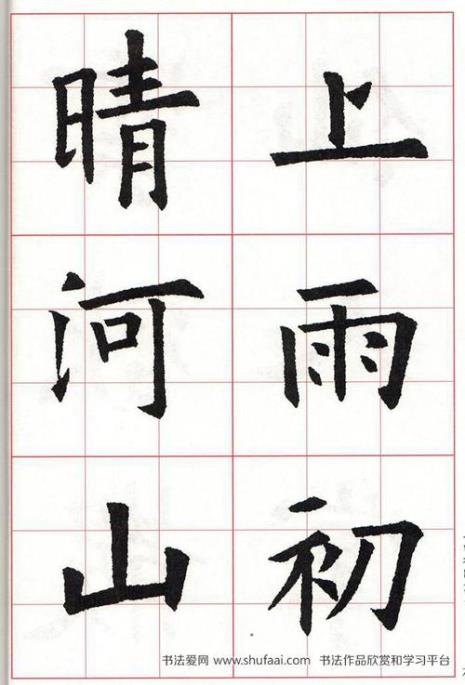 上雨初
晴河山
书法爱网 www.shufaai.com 书法作品欣赏和学习平台